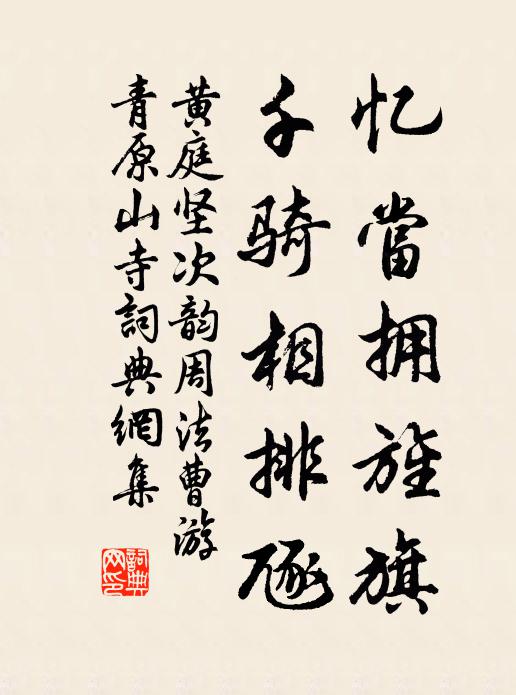 忆當拥旌旗
千骑相排豗
黄庭坚次韵周法曹游
青原山寺詞典網集
詞典
网印